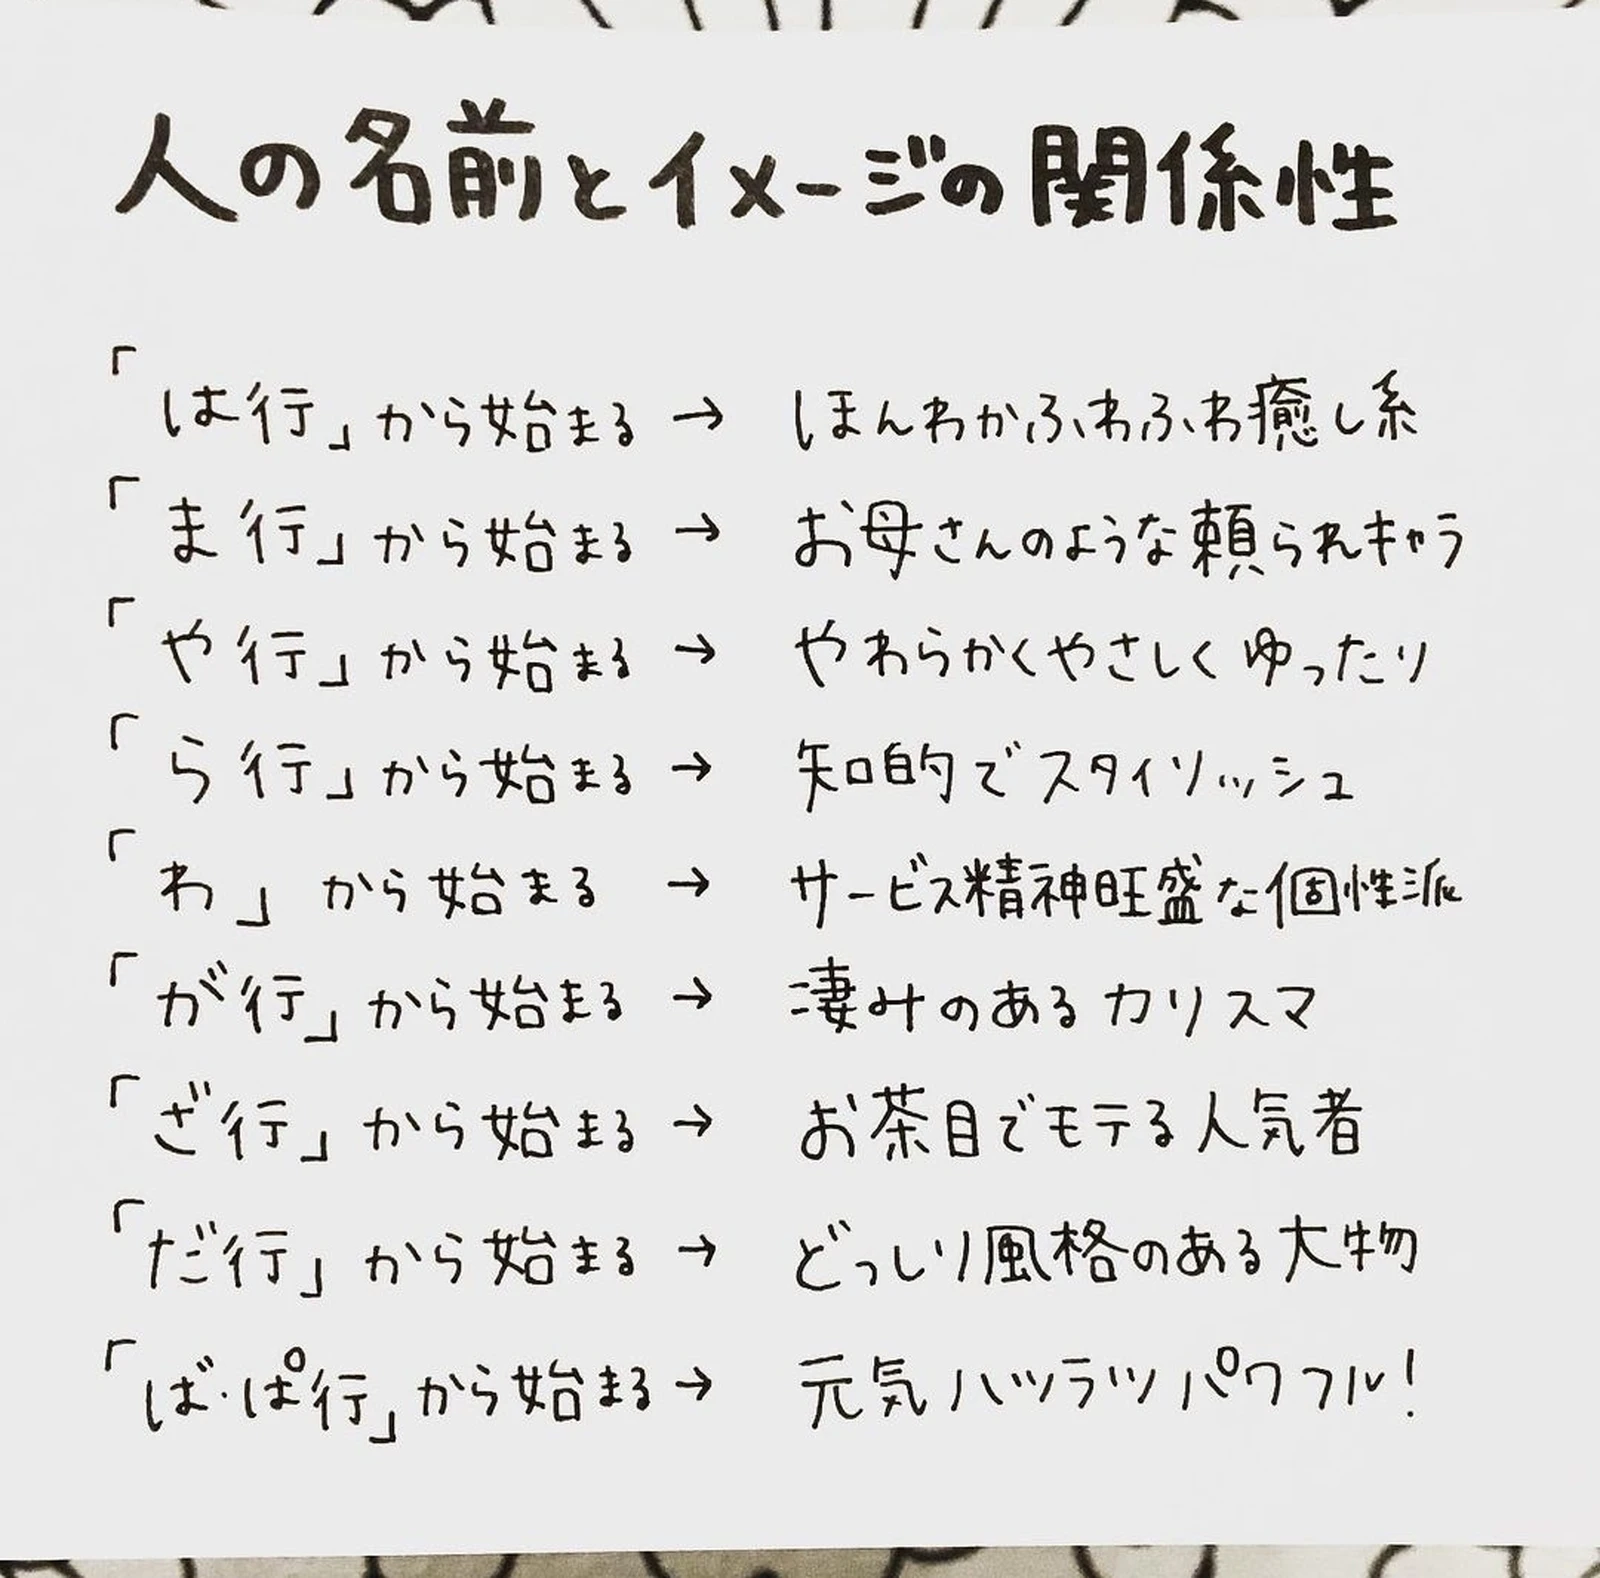 人の名前とイメージの関係性
「は行」から始まる → ほんわかふわふわ癒し系
「ま行」から始まる → お母さんのような頼られキャラ
「や行」から始まる → やわらかくやさしくゆったり
「ら行」から始まる → 知的でスタイリッシュ
「わ」から始まる → サービス精神旺盛な個性派
「が行」から始まる → 凄みのあるカリスマ
「ざ行」から始まる → お茶目でモテる人気者
「だ行」から始まる → どっしり風格のある大物
「ば・ぱ行」から始まる → 元気ハツラツパワフル!